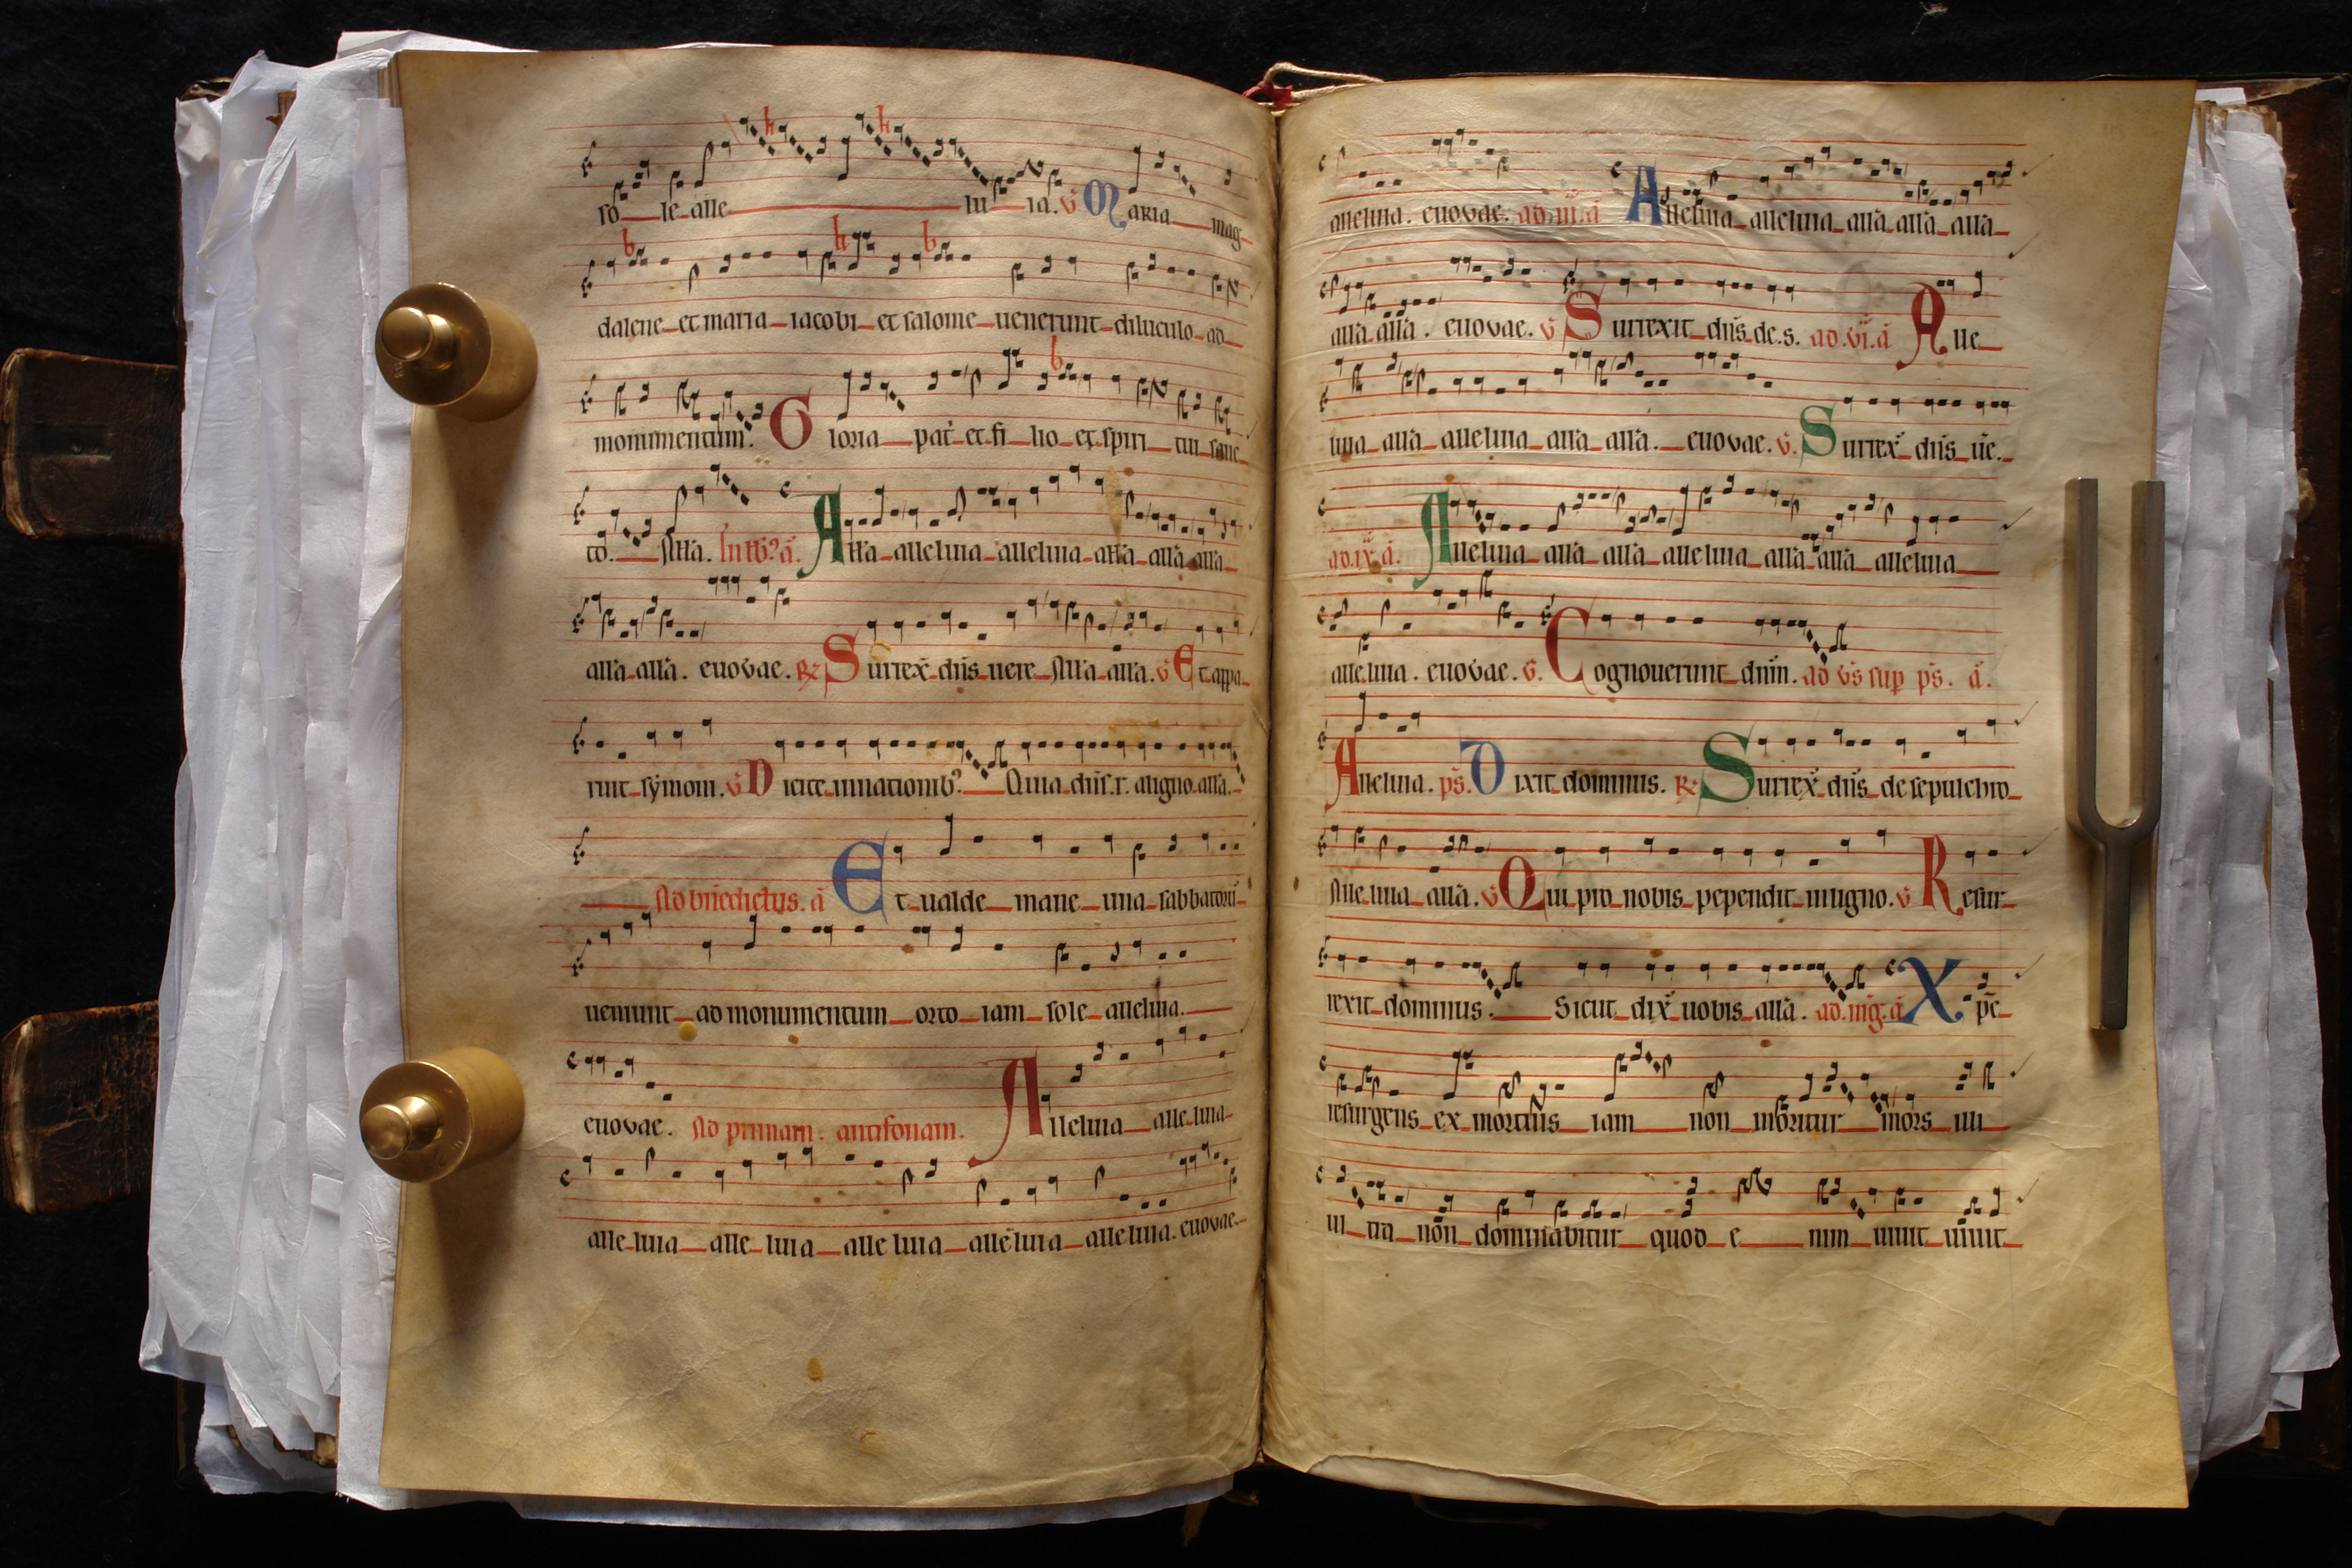 so le alle lu ia. v Maria mag
dalene et maria iacobi et salome uenerunt diluculo ad
monumentum. Gloria pat et fi lio et spiri tui sanc
to. All'a. In lb? a. All'a alleluia alleluia all'a all'a all'a
all'a all'a. euouae. R Surrex dns uere All'a all'a. v Et appa
ruit symoni. v Dicite innationib? Quia dns. r. aligno all'a.
Ad bndictus. a Et ualde mane una sabbatoru
ueniunt ad monumentum orto iam sole alleluia.
euouae. Ad primam. antifonam. Alleluia alle luia
alle luia alle luia alle luia alleluia alle luia. euouae.
alleluia. euouae. ad. iii. a Alleluia alleluia all'a all'a all'a
all'a all'a. euouae. v Surrexit dns de. s. ad. vi. a Alle
luia all'a alleluia all'a all'a. euouae. v. Surrex dns ue.
ad. ix. a. Alleluia all'a all'a alleluia all'a all'a alleluia
alleluia. euouae. v. Cognouerunt dnm. ad vs sup ps. a.
Alleluia. ps. Dixit dominus. R Surrex dns de sepulchro
Alleluia all'a. v Qui pro nobis pependit inligno. v Resur
rexit dominus. Sicut dix uobis all'a. ad. mg. a Xpe
resurgens ex mortuis iam non moritur mors illi
ul tra non dominabitur quod e nim uiuit uiuit